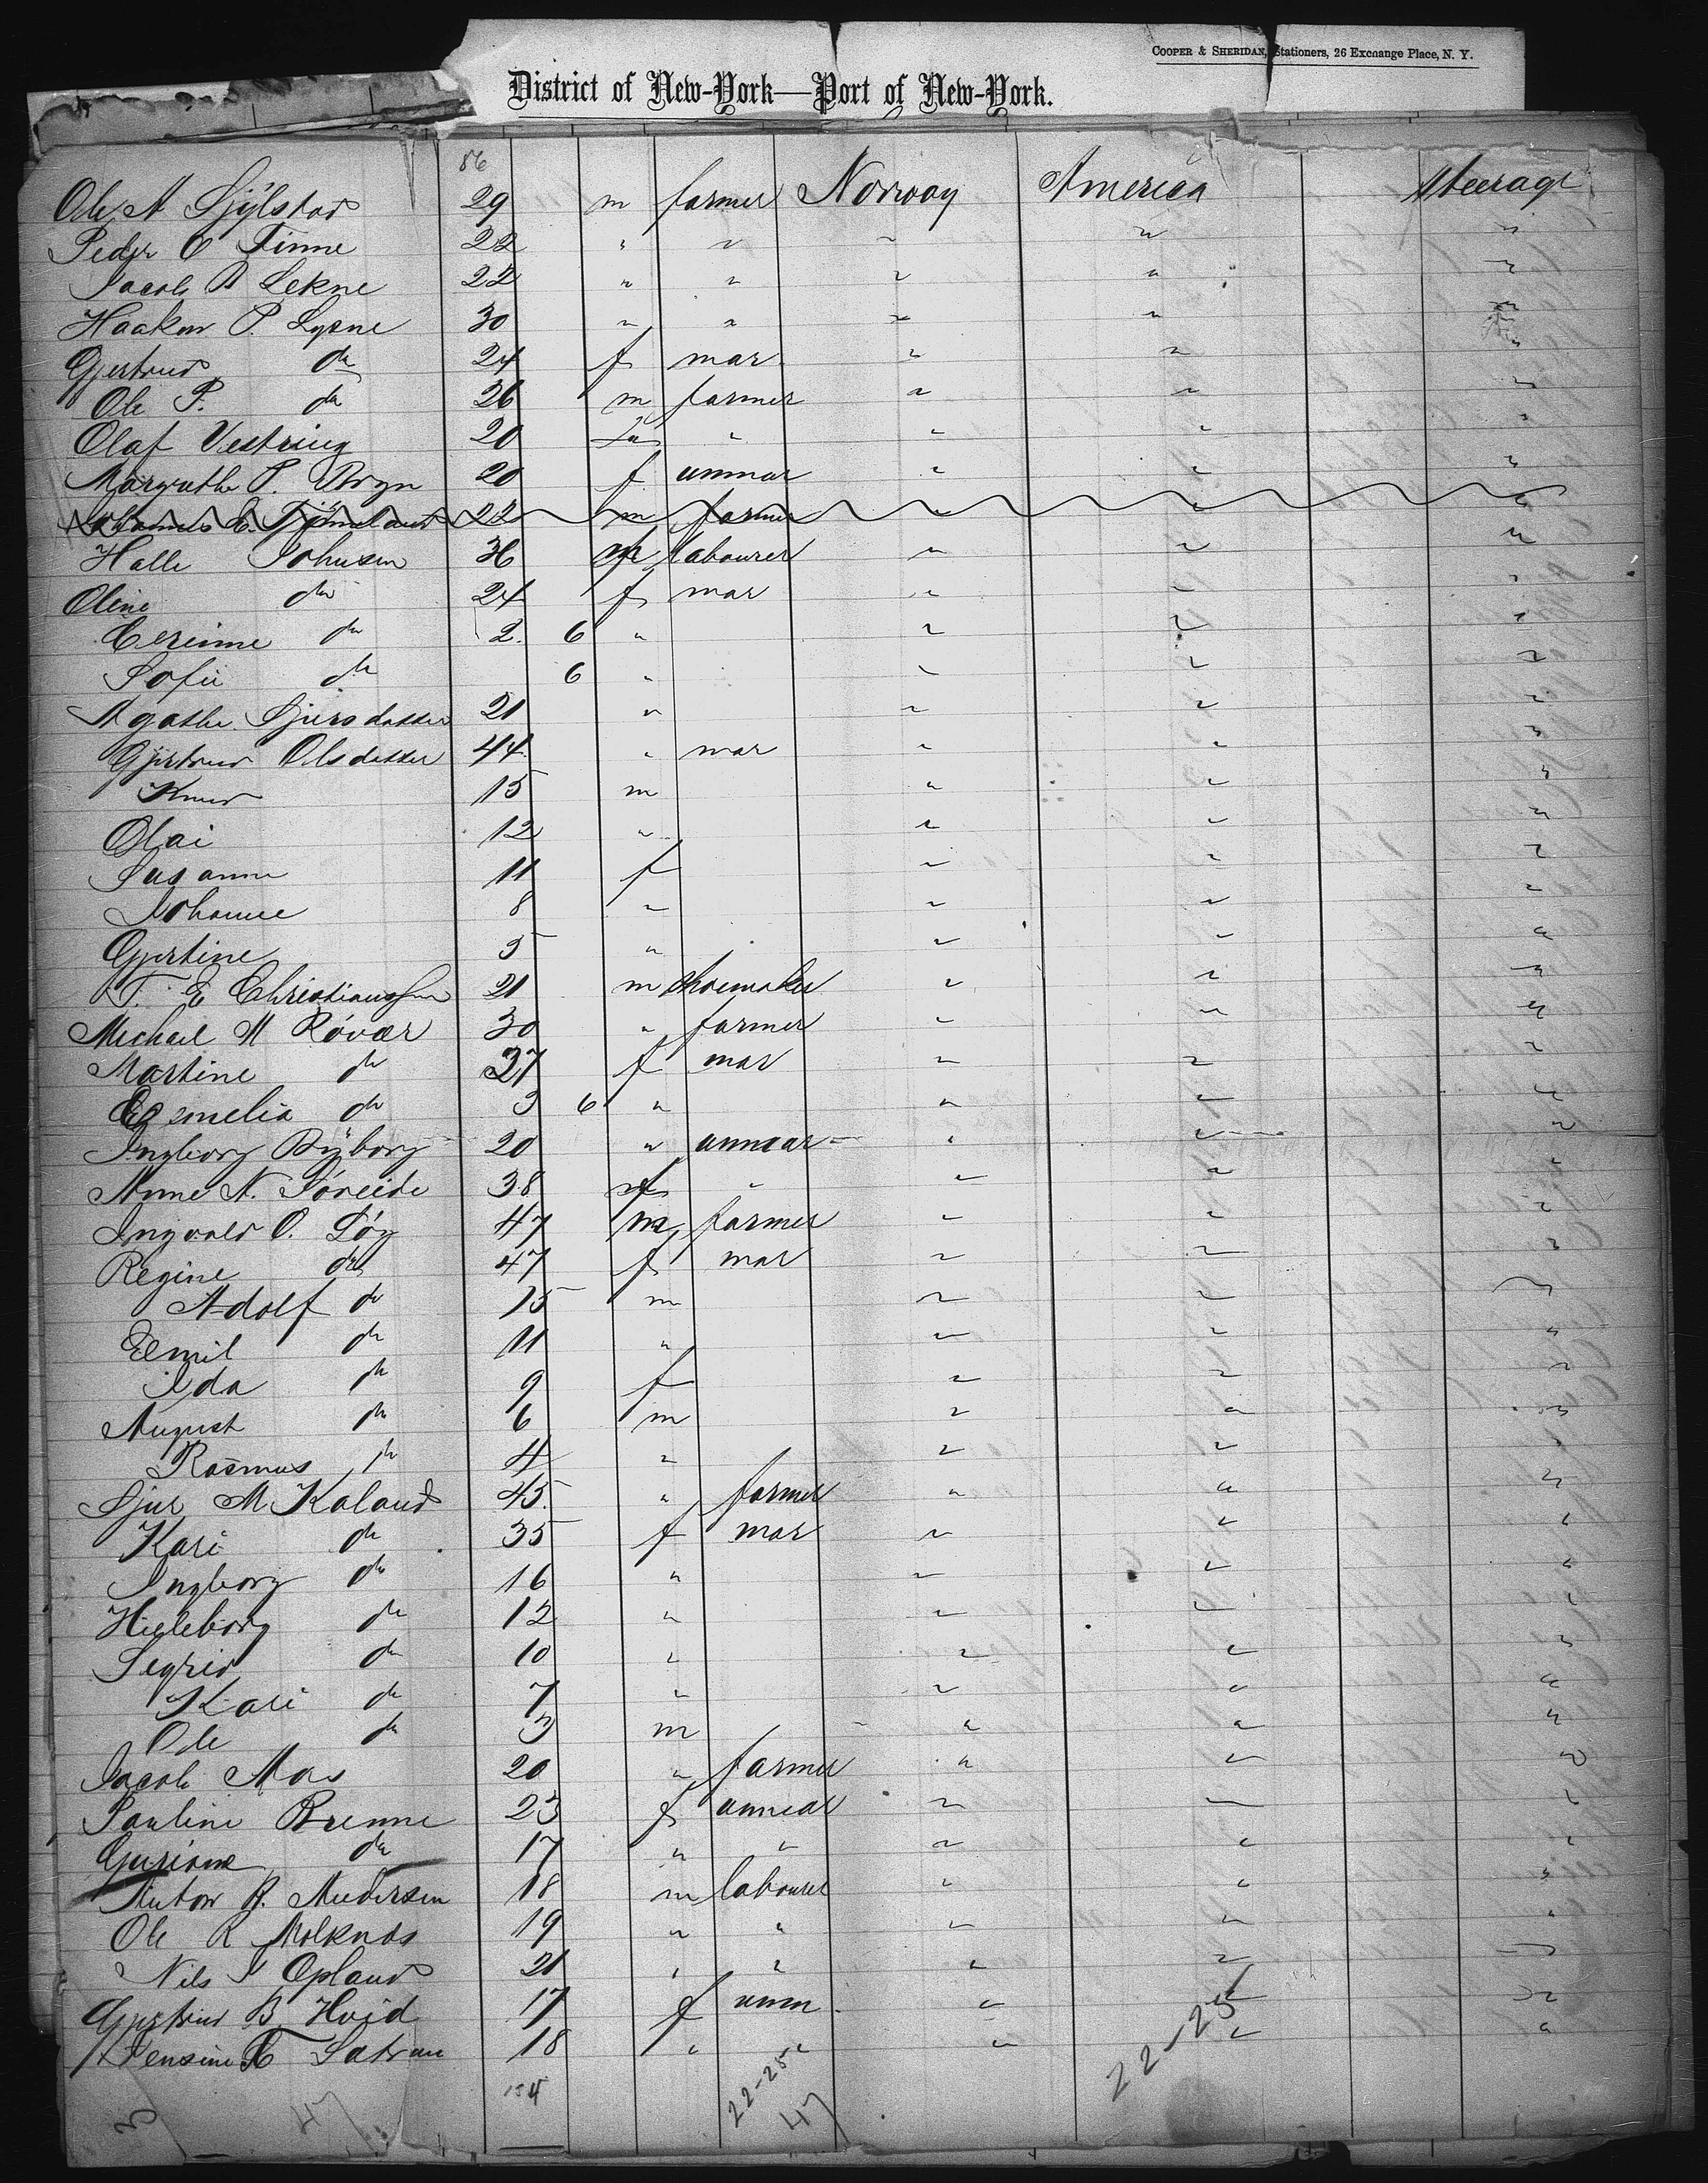 COOPER & SHERIDAN, Stationers, 26 Exchange Place, N. Y.
District of New-York—Port of New-York.
86
Ole A 29 m farmer Norway America Steerage
Peder O Finne 22 " " " " "
Jacob B Lekne 22 " " " " "
Haakon P. Lysne 30 " " " " "
Gjertrud do 24 f mar " " "
Ole P. do 26 m farmer " " "
Olaf Vestring 20 " " " "
Margrethe P. 20 f unmar " " "
Johannes 22 m farmer " " "
Halle Johnsen 36 m labourer " " "
Oline do 24 f mar " " "
do 2. 6 " " " "
Sofie do 6 " " " "
Agathe Sjursdatter 21 " " " "
Gjertrud Olsdatter 44 " mar " " "
Knud 15 m " " "
Olai 12 " " " "
Susanne 11 f " " "
Johanne 8 " " " "
Gjertine 5 " " " "
T. E Christianssen 21 m shoemaker " " "
Michael M Róvær 30 " farmer " " "
Martine do 27 f mar " " "
do 3 6 " " " "
Ingborg Nÿborg 20 " unmar " " "
Anne N. Söreide 38 f " " " "
Ingvald O. 47 m farmer " " "
Regine do 47 f mar " " "
Adolf do 15 m " " "
Emil do 11 " " " "
Ida do 9 f " " "
August do 6 m " " "
Rasmus do 4 " " " "
Sjur M Kaland 45. " farmer " " "
Kari do 35 f mar " " "
Ingborg do 16 " " " "
do 12 " " " "
Segrid do 10 " " " "
Kari do 7 " " " "
Ole do 3 m " " "
Jacob Mos 20 " farmer " " "
Pauline Brenne 23 f unmar " " "
do 17 " " " " "
Anton R. Andersen 18 m labourer " " "
Ole R Molknds 19 " " " " "
Nils J Opland 21 " " " " "
Gjertrud B Hvid 17 f unm " " "
Jensine 18 " " " " "
154 22-25 22-25
3 47 47